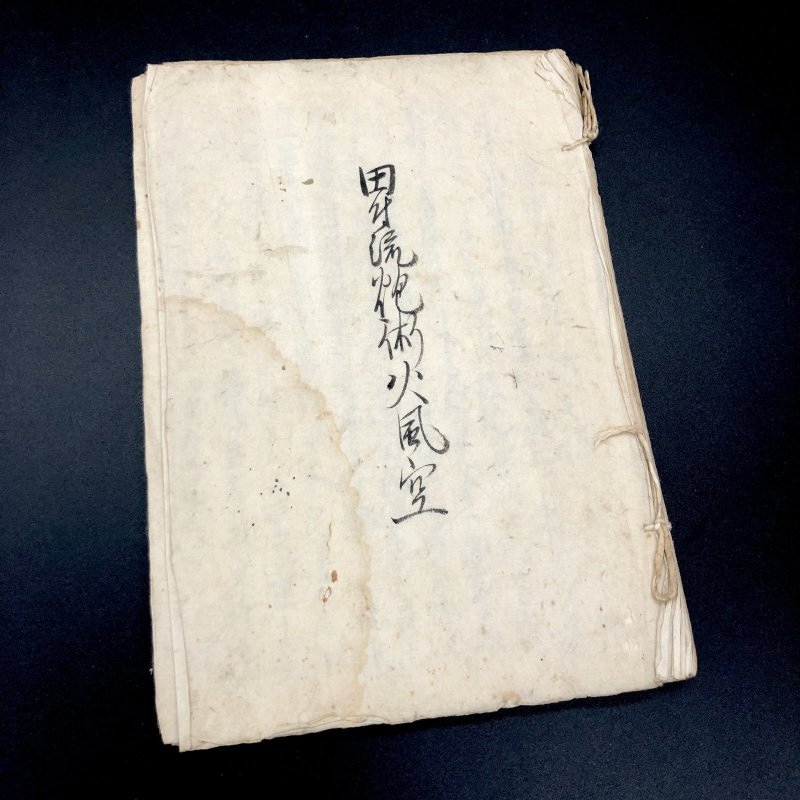 田付流炮術火風空